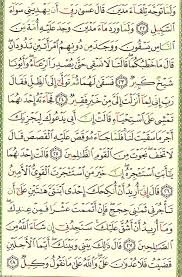 وَلَمَّا تَوَجَّهَ تِلْقَآءَ مَدْيَنَ قَالَ عَسَىٰ رَبِّىٓ أَن يَهْدِيَنِى سَوَآءَ
ٱلسَّبِيلِ ٢٢ وَلَمَّا وَرَدَ مَآءَ مَدْيَنَ وَجَدَ عَلَيْهِ أُمَّةً مِّنَ
ٱلنَّاسِ يَسْقُونَ وَوَجَدَ مِن دُونِهِمُ ٱمْرَأَتَيْنِ تَذُودَانِ
قَالَ مَا خَطْبُكُمَا قَالَتَا لَا نَسْقِى حَتَّىٰ يُصْدِرَ ٱلرِّعَآءُ وَأَبُونَا
شَيْخٌ كَبِيرٌ ٢٣ فَسَقَىٰ لَهُمَا ثُمَّ تَوَلَّىٰٓ إِلَى ٱلظِّلِّ فَقَالَ
رَبِّ إِنِّى لِمَآ أَنزَلْتَ إِلَىَّ مِنْ خَيْرٍ فَقِيرٌ ٢٤ فَجَآءَتْهُ إِحْدَىٰهُمَا
تَمْشِى عَلَى ٱسْتِحْيَآءٍ قَالَتْ إِنَّ أَبِى يَدْعُوكَ لِيَجْزِيَكَ
أَجْرَ مَا سَقَيْتَ لَنَا فَلَمَّا جَآءَهُۥ وَقَصَّ عَلَيْهِ ٱلْقَصَصَ قَالَ
لَا تَخَفْ نَجَوْتَ مِنَ ٱلْقَوْمِ ٱلظَّٰلِمِينَ ٢٥ قَالَتْ إِحْدَىٰهُمَا
يَٰٓأَبَتِ ٱسْتَـْٔجِرْهُ إِنَّ خَيْرَ مَنِ ٱسْتَـْٔجَرْتَ ٱلْقَوِىُّ ٱلْأَمِينُ
٢٦ قَالَ إِنِّىٓ أُرِيدُ أَنْ أُنكِحَكَ إِحْدَى ٱبْنَتَىَّ هَٰتَيْنِ عَلَىٰٓ أَن
تَأْجُرَنِى ثَمَٰنِىَ حِجَجٍ فَإِنْ أَتْمَمْتَ عَشْرًا فَمِنْ عِندِكَ
وَمَآ أُرِيدُ أَنْ أَشُقَّ عَلَيْكَ سَتَجِدُنِىٓ إِن شَآءَ ٱللَّهُ مِنَ
ٱلصَّٰلِحِينَ ٢٧ قَالَ ذَٰلِكَ بَيْنِى وَبَيْنَكَ أَيَّمَا ٱلْأَجَلَيْنِ
قَضَيْتُ فَلَا عُدْوَٰنَ عَلَىَّ وَٱللَّهُ عَلَىٰ مَا نَقُولُ وَكِيلٌ ٢٨